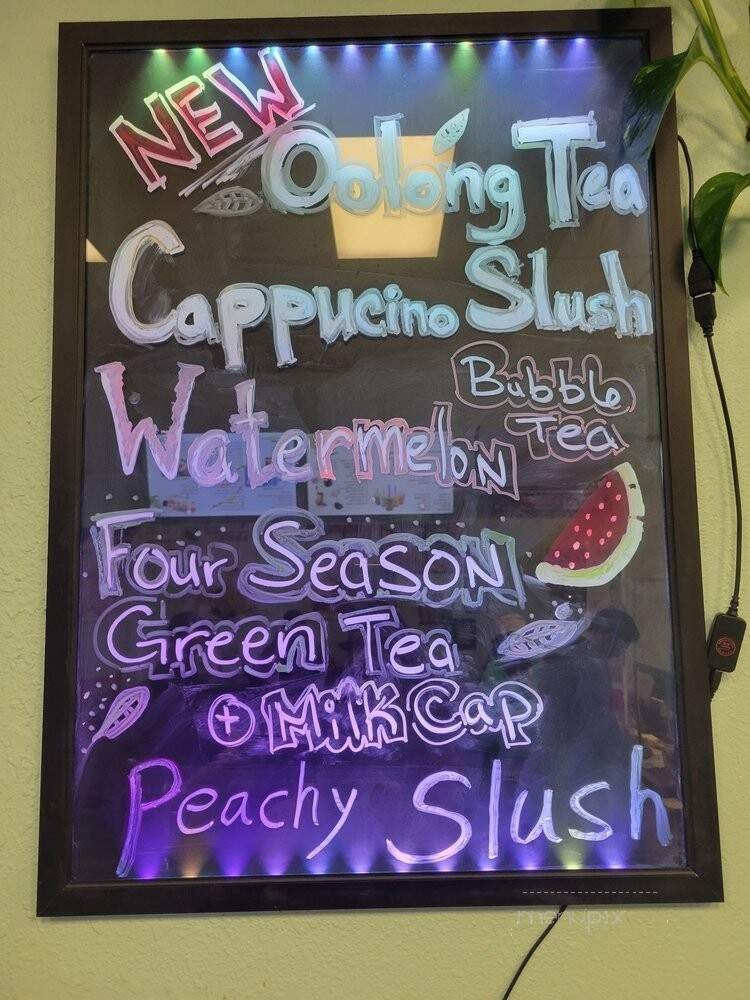 NEW
Oolong Tea
Cappucino Slush
Watermelon Bubble Tea
Four Season
Green Tea
+ Milk Cap
Peachy Slush
menupix